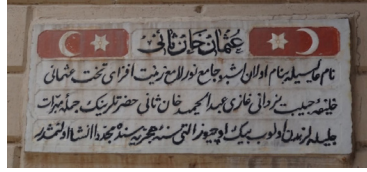 عثمان خان ثانی
نام عالیسیله بنام اولان اشبو جامع نور لامع زینت افزای تخت عثمانی
خلیفهٔ یزدانی غازی عبد الحمید خان ثانی حضرتلرینك جمله مبرات
جلیله لرندن اولوب بیك اوچیوز التی سنه هجریه سنده مجددا انشا اولنمشدر